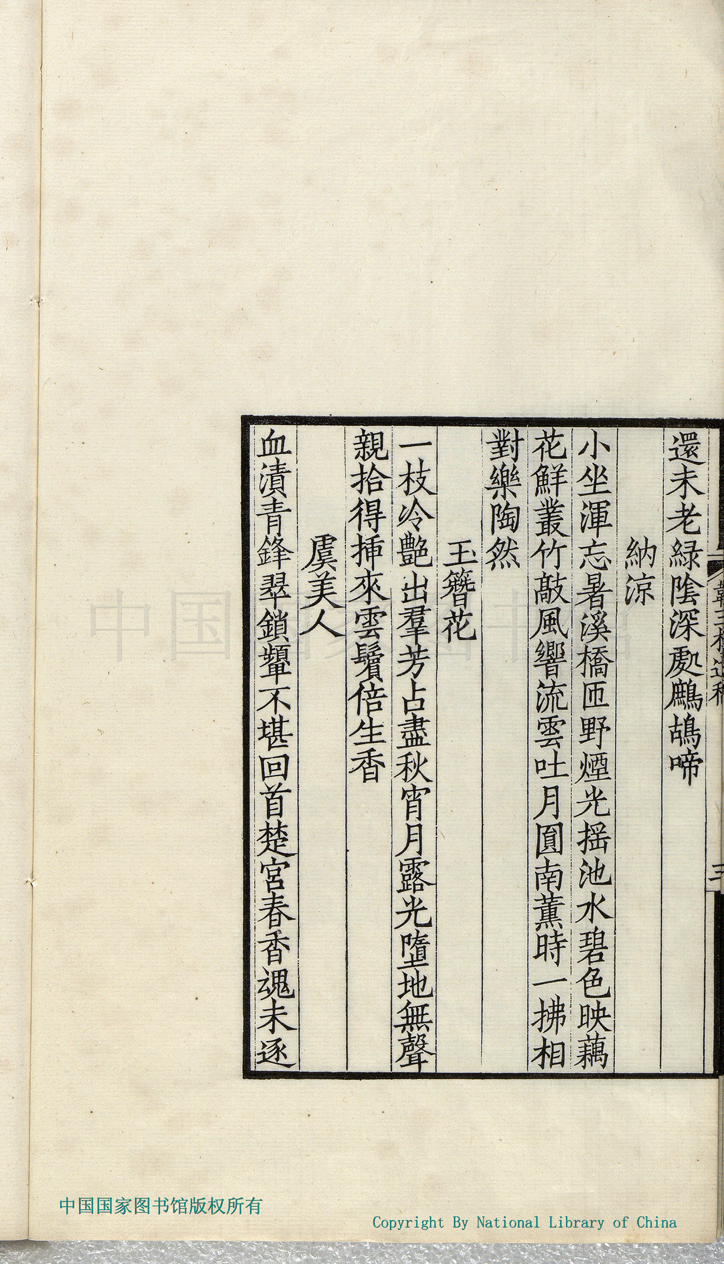 還未老緑陰深處鷓鴣啼
納涼
小坐渾忘暑溪橋匝野煙光揺池水碧色映藕
花鮮叢竹敲風響流雲吐月圓南薰時一拂相
對樂陶然
玉簪花
一枝冷艷出羣芳占盡秋宵月露光墮地無聲
親拾得揷來雲鬢倍生香
虞美人
血漬青鋒翠鎖顰不堪回首楚宮春香魂未逐
三
中国国家图书馆
中国国家图书馆版权所有
Copyright By National Library of China